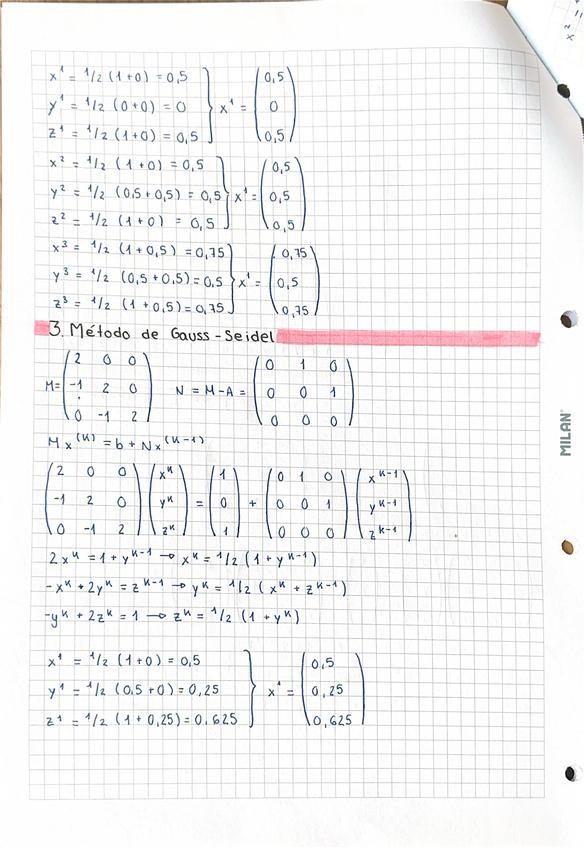 x¹ = 1/2 (1+0) = 0,5
y¹ = 1/2 (0+0) = 0
z¹ = 1/2 (1+0) = 0,5
x¹ =
0,5
0
0,5
x² = 1/2 (1+0) = 0,5
y² = 1/2 (0,5+0,5) = 0,5
z² = 1/2 (1+0) = 0,5
x¹ =
0,5
0,5
0,5
x³ = 1/2 (1+0,5) = 0,75
y³ = 1/2 (0,5+0,5) = 0,5
z³ = 1/2 (1+0,5) = 0,75
x¹ =
0,75
0,5
0,75
3. Método de Gauss-Seidel
M =
2 0 0
-1 2 0
0 -1 2
N = M-A =
0 1 0
0 0 1
0 0 0
Mx^(k) = b + Nx^(k-1)
2 0 0
-1 2 0
0 -1 2
x^k
y^k
z^k
=
1
0
1
+
0 1 0
0 0 1
0 0 0
x^k-1
y^k-1
z^k-1
2x^k = 1 + y^k-1 → x^k = 1/2 (1 + y^k-1)
-x^k + 2y^k = z^k-1 → y^k = 1/2 (x^k + z^k-1)
-y^k + 2z^k = 1 → z^k = 1/2 (1 + y^k)
x¹ = 1/2 (1+0) = 0,5
y¹ = 1/2 (0,5+0) = 0,25
z¹ = 1/2 (1+0,25) = 0,625
x¹ =
0,5
0,25
0,625
MILAN